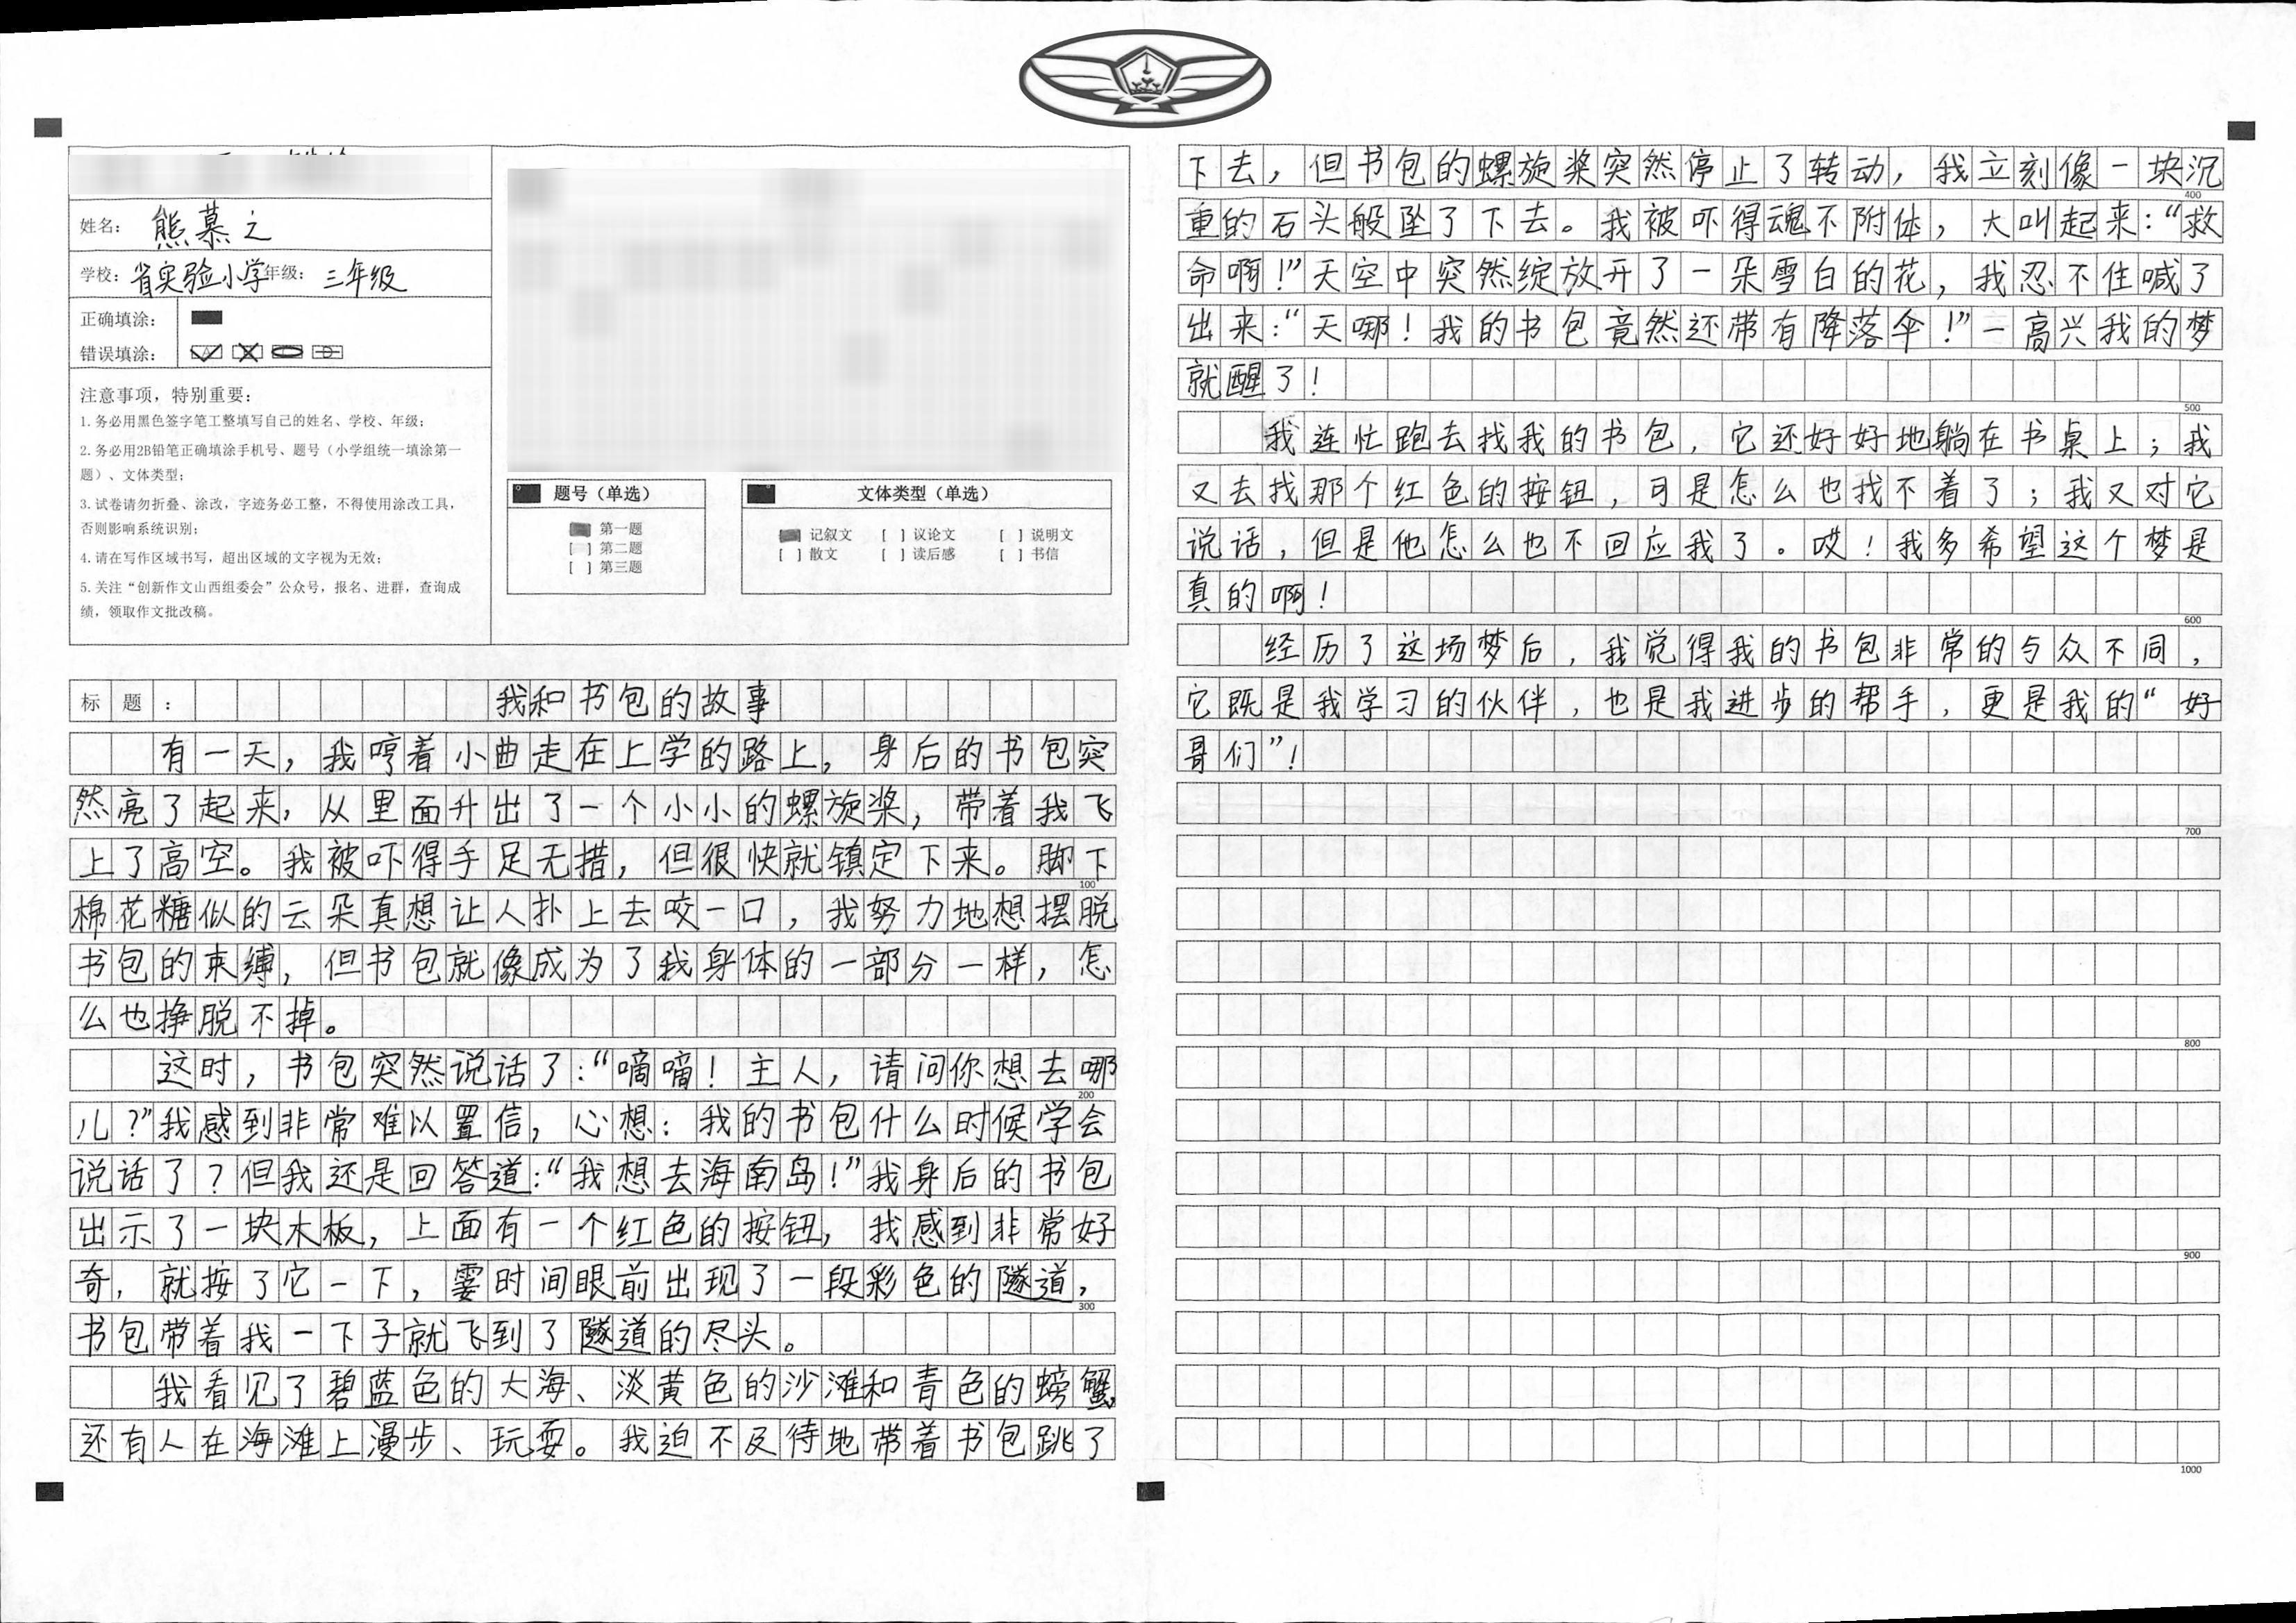 姓名：熊慕之
学校：省实验小学 年级：三年级
正确填涂：
错误填涂：
注意事项，特别重要：
1.务必用黑色签字笔工整填写自己的姓名、学校、年级；
2.务必用2B铅笔正确填涂手机号、题号（小学组统一填涂第一
题）、文体类型；
3.试卷请勿折叠、涂改，字迹务必工整，不得使用涂改工具，
否则影响系统识别；
4.请在写作区域书写，超出区域的文字视为无效；
5.关注“创新作文山西组委会”公众号，报名、进群，查询成
绩，领取作文批改稿。
题号（单选）
第一题
[ ] 第二题
[ ] 第三题
文体类型（单选）
记叙文 [ ] 议论文 [ ] 说明文
[ ] 散文 [ ] 读后感 [ ] 书信
标题：我和书包的故事
有一天，我哼着小曲走在上学的路上，身后的书包突
然亮了起来，从里面升出了一个小小的螺旋桨，带着我飞
上了高空。我被吓得手足无措，但很快就镇定下来。脚下
100
棉花糖似的云朵真想让人扑上去咬一口，我努力地想摆脱
书包的束缚，但书包就像成为了我身体的一部分一样，怎
么也挣脱不掉。
这时，书包突然说话了：“嘀嘀！主人，请问你想去哪
200
儿？”我感到非常难以置信，心想：我的书包什么时候学会
说话了？但我还是回答道：“我想去海南岛！”我身后的书包
出示了一块木板，上面有一个红色的按钮，我感到非常好
奇，就按了它一下，霎时间眼前出现了一段彩色的隧道，
300
书包带着我一下子就飞到了隧道的尽头。
我看见了碧蓝色的大海、淡黄色的沙滩和青色的螃蟹，
还有人在海滩上漫步、玩耍。我迫不及待地带着书包跳了
下去，但书包的螺旋桨突然停止了转动，我立刻像一块沉
400
重的石头般坠了下去。我被吓得魂不附体，大叫起来：“救
命啊！”天空中突然绽放开了一朵雪白的花，我忍不住喊了
出来：“天哪！我的书包竟然还带有降落伞！”一高兴我的梦
就醒了！
500
我连忙跑去找我的书包，它还好好地躺在书桌上；我
又去找那个红色的按钮，可是怎么也找不着了；我又对它
说话，但是他怎么也不回应我了。哎！我多希望这个梦是
真的啊！
600
经历了这场梦后，我觉得我的书包非常的与众不同，
它既是我学习的伙伴，也是我进步的帮手，更是我的“好
哥们”！
700
800
900
1000